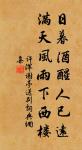 日暮酒醒人已遠
滿天風雨下西樓
許渾謝亭送別詞典網